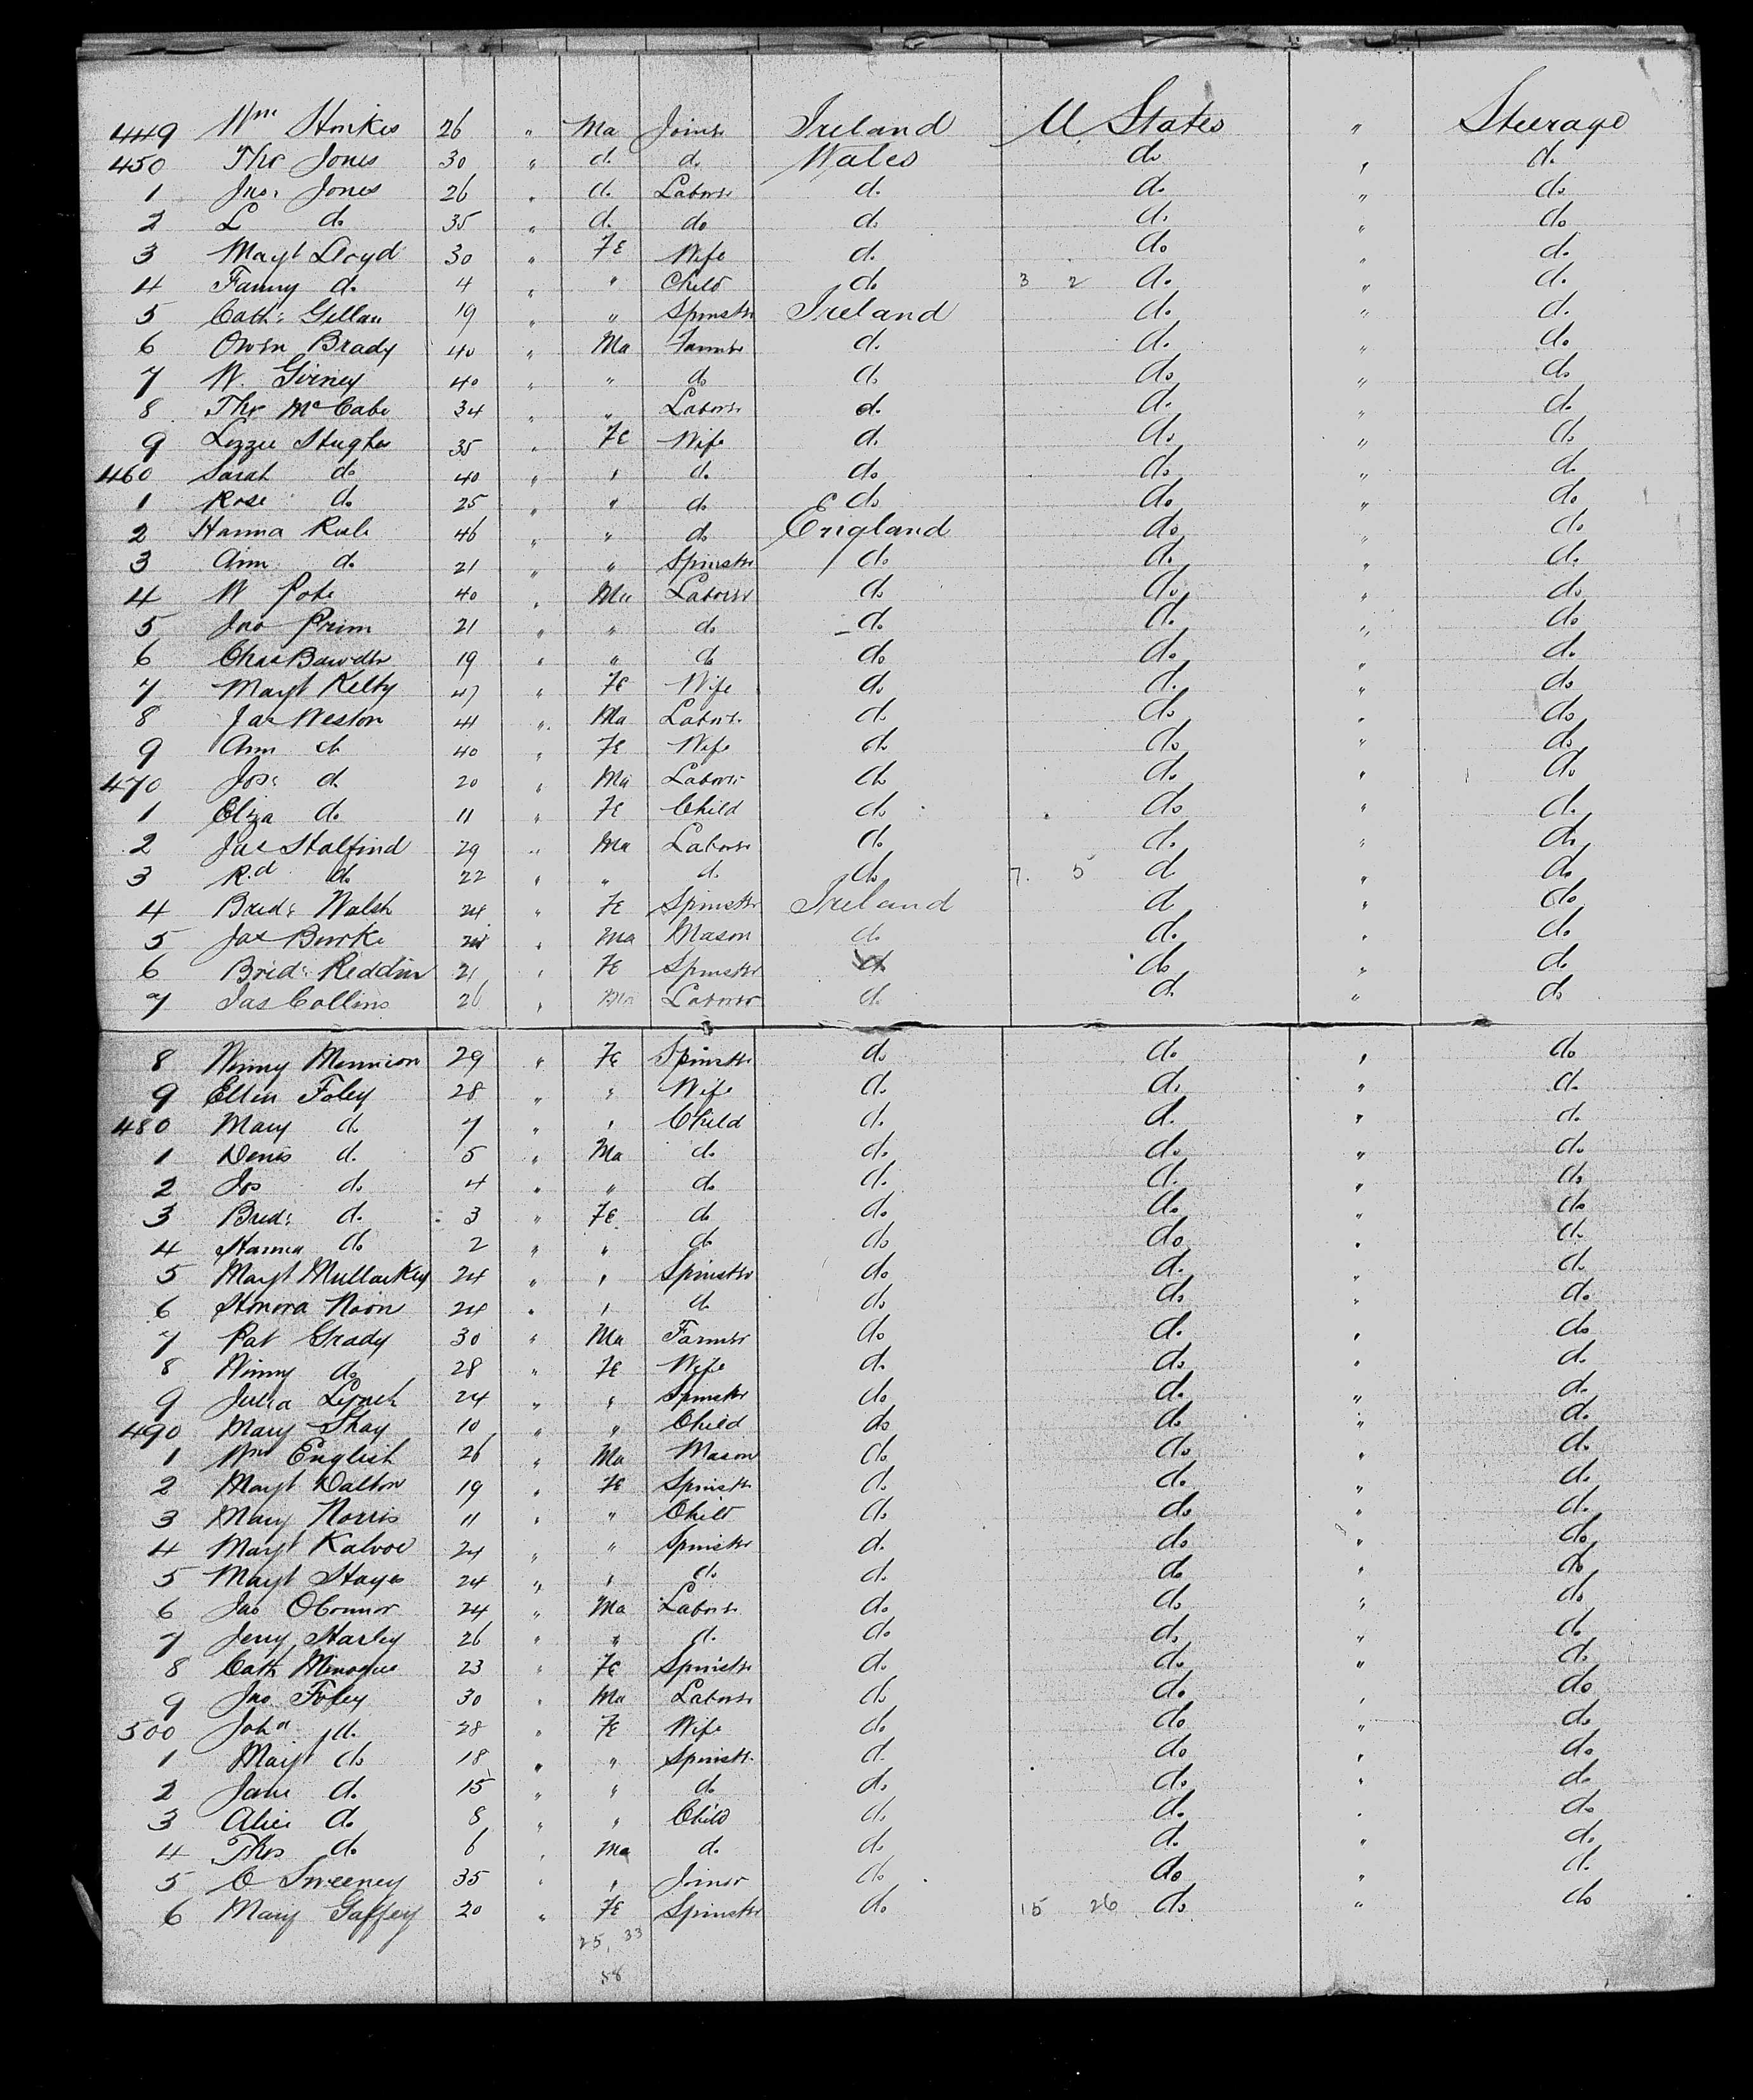 449 Wm Honkes 26 " Ma Joiner Ireland U States " Steerage
450 Thos Jones 30 " do do Wales do " do
1 Jno. Jones 26 " do Laborer do do " do
2 L do 35 " do do do do " do
3 Magt Lloyd 30 " Fe Wife do do " do
4 Fanny do 4 " " Child do 3 2 do " do
5 Cath: Gillan 19 " " Spinster Ireland do " do
6 Owen Brady 40 " Ma Farmer do do " do
7 W. Girney 40 " " do do do " do
8 Thos McCabe 34 " " Laborer do do " do
9 Lizzie Hughes 35 " Fe Wife do do " do
460 Sarah do 40 " " do do do " do
1 Rose do 25 " " do do do " do
2 Hanna Rule 46 " " do England do " do
3 Ann do 21 " " Spinster do do " do
4 W Pote 40 " Ma Laborer do do " do
5 Jno Prim 21 " " do do do " do
6 Chas Bawder 19 " " do do do " do
7 Magt Kelty 47 " Fe Wife do do " do
8 Jas Weston 41 " Ma Laborer do do " do
9 Ann do 40 " Fe Wife do do " do
470 Jos: do 20 " Ma Laborer do do " do
1 Eliza do 11 " Fe Child do do " do
2 Jas Halfind 29 " Ma Laborer do do " do
3 Rd do 22 " " do do 7. 5 do " do
4 Brid: Walsh 24 " Fe Spinster Ireland do " do
5 Jas Burke 24 " Ma Mason do do " do
6 Brid: Reddin 21 " Fe Spinster do do " do
7 Jas Collins 26 " Ma Laborer do do " do
8 Winny Mannion 29 " Fe Spinster do do " do
9 Ellen Foley 28 " " Wife do do " do
480 Mary do 7 " " Child do do " do
1 Denis do 5 " Ma do do do " do
2 Jos do 4 " " do do do " do
3 Brid: do 3 " Fe do do do " do
4 Hanna do 2 " " do do do " do
5 Magt Mullarkey 24 " " Spinster do do " do
6 Honora Noon 24 " " do do do " do
7 Pat Grady 30 " Ma Farmer do do " do
8 Winny do 28 " Fe Wife do do " do
9 Julia Lynch 24 " " Spinster do do " do
490 Mary Shay 10 " " Child do do " do
1 Wm English 26 " Ma Mason do do " do
2 Magt Dalton 19 " Fe Spinster do do " do
3 Mary Norris 11 " " Child do do " do
4 Magt Kalvoe 24 " " Spinster do do " do
5 Magt Hayes 24 " " do do do " do
6 Jas OConnor 24 " Ma Laborer do do " do
7 Jerry Harley 26 " " do do do " do
8 Cath Minogue 23 " Fe Spinster do do " do
9 Jno Foley 30 " Ma Laborer do do " do
500 Joha do 28 " Fe Wife do do " do
1 Magt do 18 " " Spinster do do " do
2 Jane do 15 " " do do do " do
3 Alice do 8 " " Child do do " do
4 Thos do 6 " Ma do do do " do
5 C Sweeney 35 " " Joiner do do " do
6 Mary Gaffey 20 " Fe Spinster do 15 26 do " do
25, 33
58